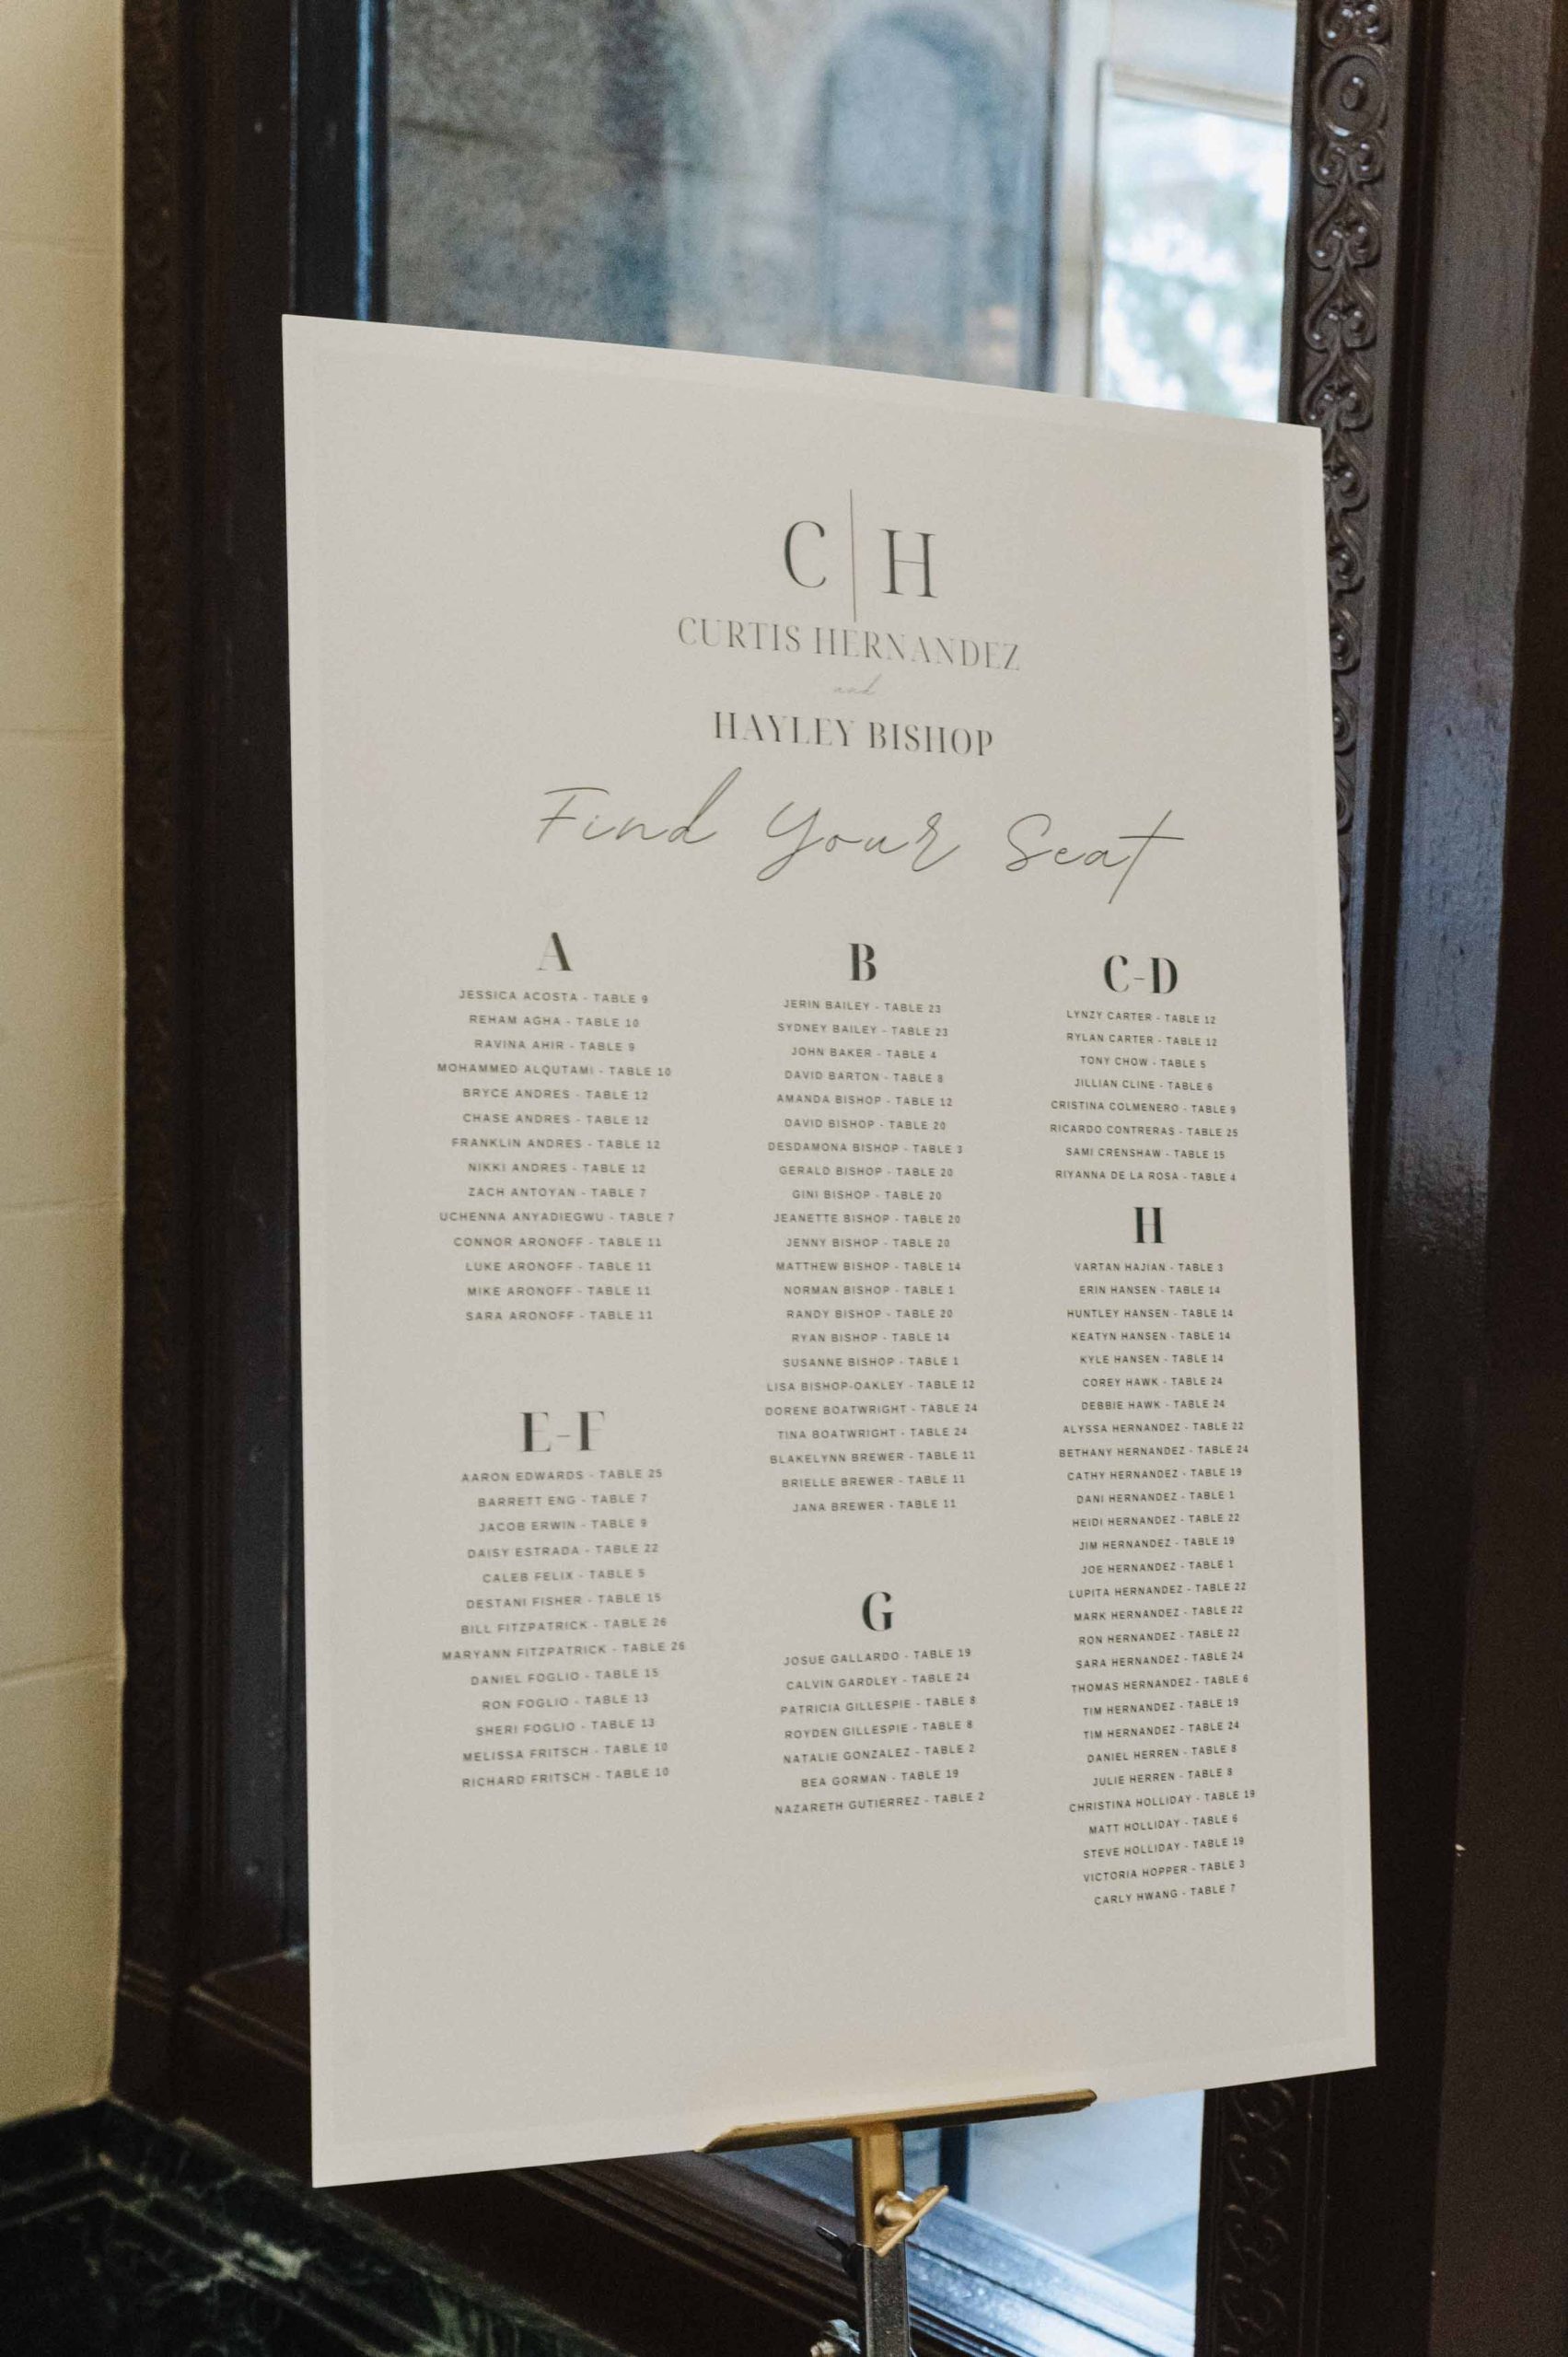 C | H
CURTIS HERNANDEZ
and
HAYLEY BISHOP
Find Your Seat
A
JESSICA ACOSTA - TABLE 9
REHAM AGHA - TABLE 10
RAVINA AHIR - TABLE 9
MOHAMMED ALQUTAMI - TABLE 10
BRYCE ANDRES - TABLE 12
CHASE ANDRES - TABLE 12
FRANKLIN ANDRES - TABLE 12
NIKKI ANDRES - TABLE 12
ZACH ANTOYAN - TABLE 7
UCHENNA ANYADIEGWU - TABLE 7
CONNOR ARONOFF - TABLE 11
LUKE ARONOFF - TABLE 11
MIKE ARONOFF - TABLE 11
SARA ARONOFF - TABLE 11
E-F
AARON EDWARDS - TABLE 25
BARRETT ENG - TABLE 7
JACOB ERWIN - TABLE 9
DAISY ESTRADA - TABLE 22
CALEB FELIX - TABLE 5
DESTANI FISHER - TABLE 15
BILL FITZPATRICK - TABLE 26
MARYANN FITZPATRICK - TABLE 26
DANIEL FOGLIO - TABLE 15
RON FOGLIO - TABLE 13
SHERI FOGLIO - TABLE 13
MELISSA FRITSCH - TABLE 10
RICHARD FRITSCH - TABLE 10
B
JERIN BAILEY - TABLE 23
SYDNEY BAILEY - TABLE 23
JOHN BAKER - TABLE 4
DAVID BARTON - TABLE 8
AMANDA BISHOP - TABLE 12
DAVID BISHOP - TABLE 20
DESDAMONA BISHOP - TABLE 3
GERALD BISHOP - TABLE 20
GINI BISHOP - TABLE 20
JEANETTE BISHOP - TABLE 20
JENNY BISHOP - TABLE 20
MATTHEW BISHOP - TABLE 14
NORMAN BISHOP - TABLE 1
RANDY BISHOP - TABLE 20
RYAN BISHOP - TABLE 14
SUSANNE BISHOP - TABLE 1
LISA BISHOP-OAKLEY - TABLE 12
DORENE BOATWRIGHT - TABLE 24
TINA BOATWRIGHT - TABLE 24
BLAKELYNN BREWER - TABLE 11
BRIELLE BREWER - TABLE 11
JANA BREWER - TABLE 11
G
JOSUE GALLARDO - TABLE 19
CALVIN GARDLEY - TABLE 24
PATRICIA GILLESPIE - TABLE 8
ROYDEN GILLESPIE - TABLE 8
NATALIE GONZALEZ - TABLE 2
BEA GORMAN - TABLE 19
NAZARETH GUTIERREZ - TABLE 2
C-D
LYNZY CARTER - TABLE 12
RYLAN CARTER - TABLE 12
TONY CHOW - TABLE 5
JILLIAN CLINE - TABLE 6
CRISTINA COLMENERO - TABLE 9
RICARDO CONTRERAS - TABLE 25
SAMI CRENSHAW - TABLE 15
RIYANNA DE LA ROSA - TABLE 4
H
VARTAN HAJIAN - TABLE 3
ERIN HANSEN - TABLE 14
HUNTLEY HANSEN - TABLE 14
KEATYN HANSEN - TABLE 14
KYLE HANSEN - TABLE 14
COREY HAWK - TABLE 24
DEBBIE HAWK - TABLE 24
ALYSSA HERNANDEZ - TABLE 22
BETHANY HERNANDEZ - TABLE 24
CATHY HERNANDEZ - TABLE 19
DANI HERNANDEZ - TABLE 1
HEIDI HERNANDEZ - TABLE 22
JIM HERNANDEZ - TABLE 19
JOE HERNANDEZ - TABLE 1
LUPITA HERNANDEZ - TABLE 22
MARK HERNANDEZ - TABLE 22
RON HERNANDEZ - TABLE 22
SARA HERNANDEZ - TABLE 24
THOMAS HERNANDEZ - TABLE 6
TIM HERNANDEZ - TABLE 19
TIM HERNANDEZ - TABLE 24
DANIEL HERREN - TABLE 8
JULIE HERREN - TABLE 8
CHRISTINA HOLLIDAY - TABLE 19
MATT HOLLIDAY - TABLE 6
STEVE HOLLIDAY - TABLE 19
VICTORIA HOPPER - TABLE 3
CARLY HWANG - TABLE 7